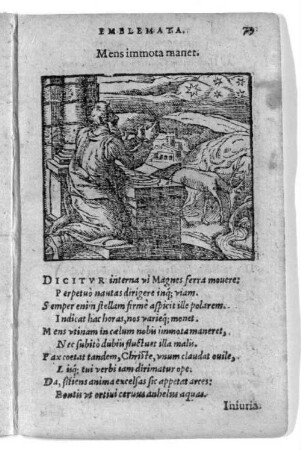 EMBLEMATA. 79
Mens immota manet.
DICITVR interna vi Magnes ferra mouere:
Perpetuò nautas dirigere inq́; viam.
Semper enim stellam firmè aspicit ille polarem.
Indicat hac horas, nos varieq́; monet.
Mens vtinam in cælum nobis immota maneret,
Nec subitò dubiis fluctuet illa malis.
Pax coëat tandem, Christe, vnum claudat ouile,
Lisq́; tui verbi iam dirimatur ope.
Da, sitiens anima excelsas sic appetat arces:
Fontis vt ortiui ceruus anhelus aquas.
Iniuria.